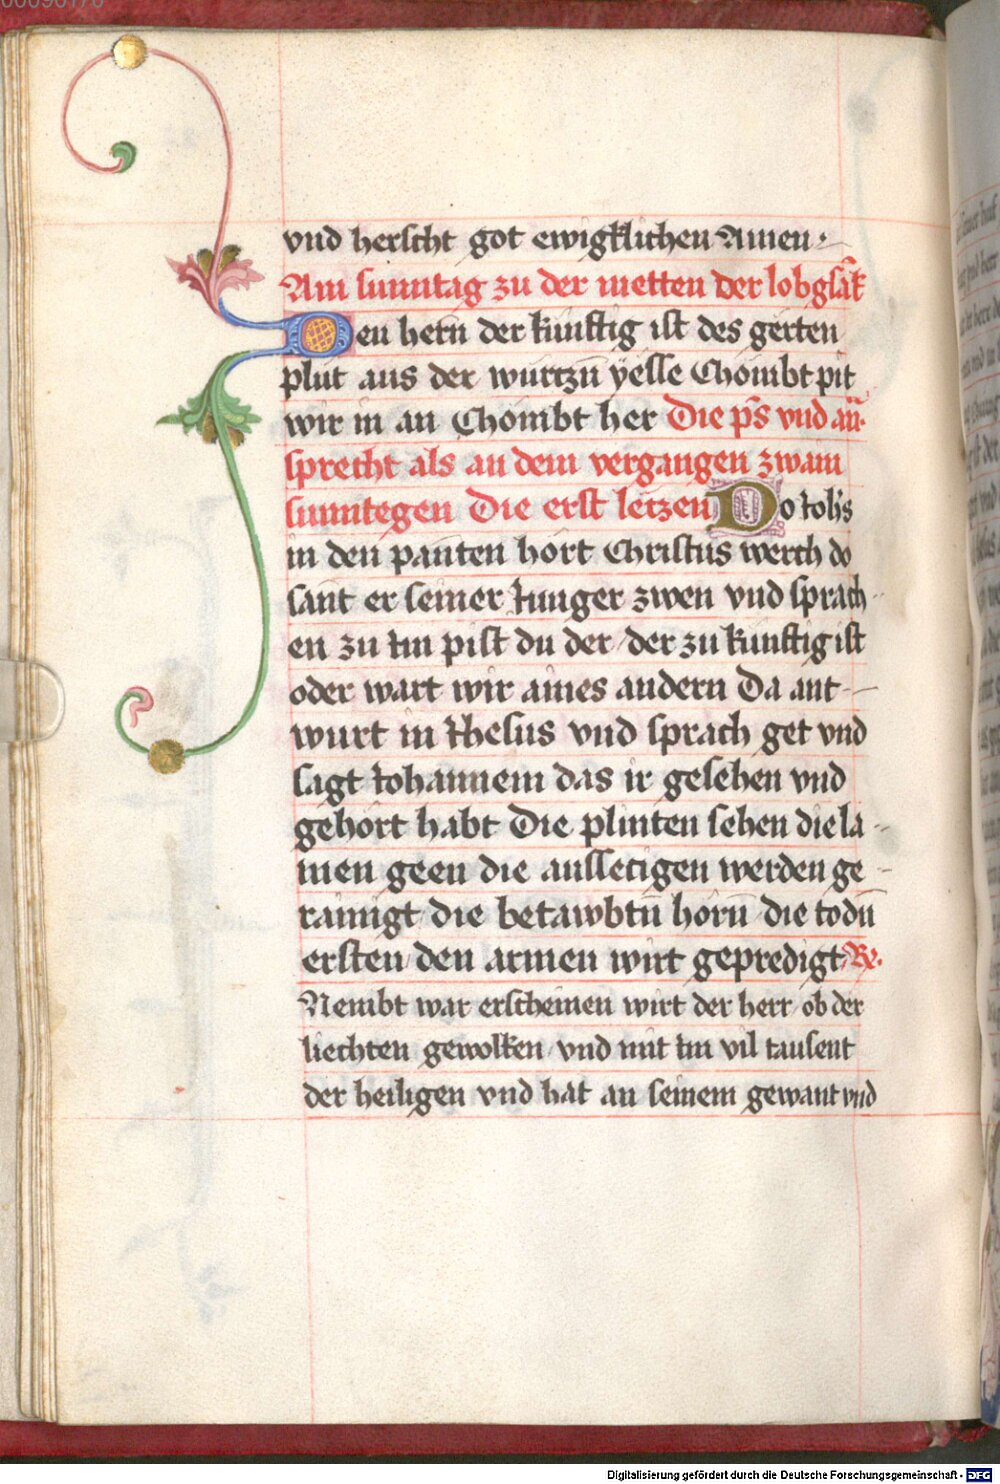 vnd herscht got ewigklichen Amen ·
Am sunntag zu der metten der lobgsāk
Den hern der kunftig ist des gerten
plut aus der wurtzn̄ yesse Chombt pit
wir in an Chombt her Die ps̄ vnd an̄
sprecht als an dem vergangen zwain
sunntegen Die erst letzen Do Joh's
in den panten hort Christus werch do
sant er seiner Junger zwen vnd sprach-
en zu Im pist du der der zu kunftig ist
oder wart wir aines andern Da ant-
wurt in Jhesus vnd sprach get vnd
sagt Johannem das ir gesehen vnd
gehort habt Die plinten sehen die la-
men geen die aussetzigen werden ge-
rainigt die betawbtn̄ horn̄ die todn̄
ersten den armen wirt gepredigt Re.
Nembt war erscheinen wirt der herr ob der
liechten gewolken vnd mit Im vil tausent
der heiligen vnd hat an seinem gewant vnd
Digitalisierung gefördert durch die Deutsche Forschungsgemeinschaft - DFG